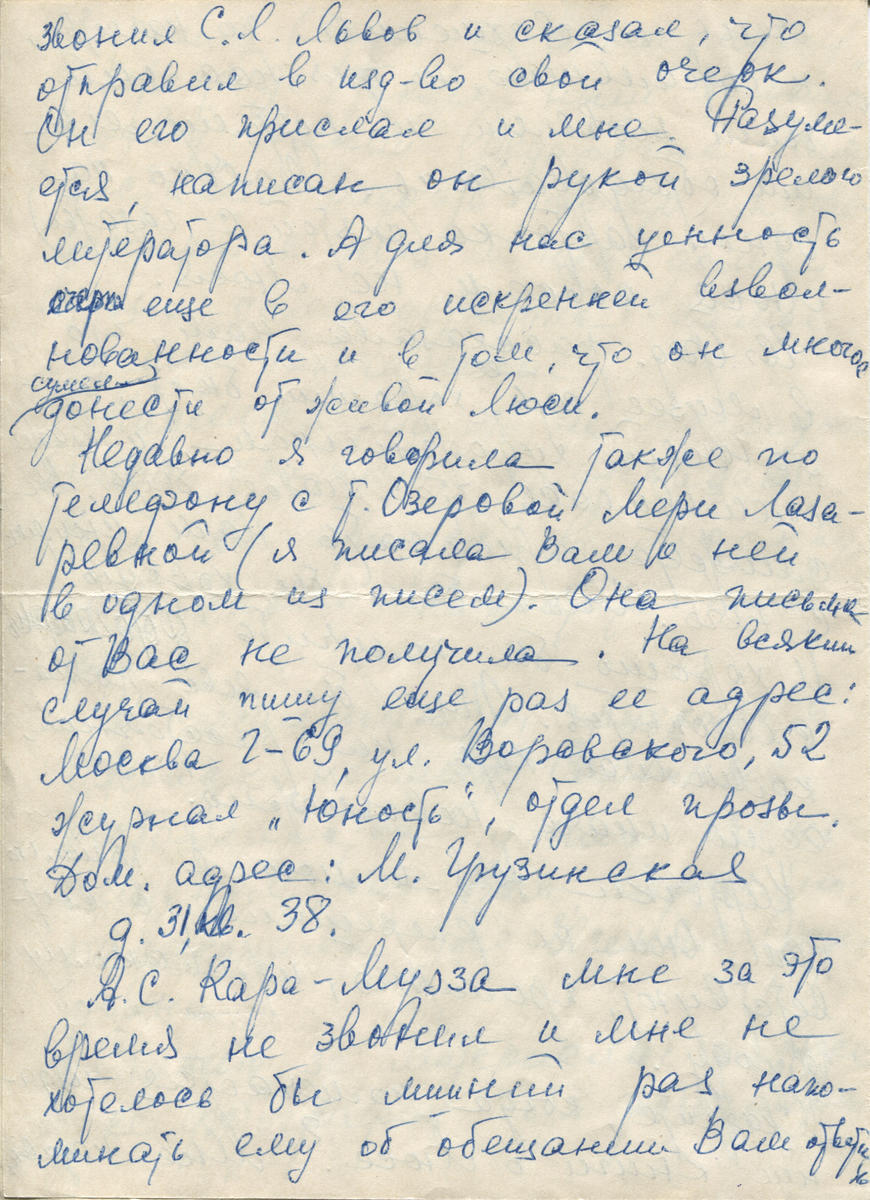 звонил С.Л. Львов и сказал, что
отправил в изд-во свой очерк.
Он его прислал и мне. Разуме-
ется, написан он рукой зрелого
литератора. А для нас ценность
еще в его искренней взвол-
нованности и в том, что он многое
сумел
донести от живой Люси.
Недавно я говорила также по
телефону с т. Озеровой Мери Лаза-
ревной (я писала Вам о ней
в одном из писем). Она письма
от Вас не получила. На всякий
случай пишу еще раз ее адрес:
Москва Г-69, ул. Воровского, 52
журнал „Юность", отдел прозы.
Дом. адрес: М. Грузинская
д. 31, кв. 38.
А.С. Кара-Мурза мне за это
время не звонил и мне не
хотелось бы лишний раз напо-
минать ему об обещании Вам ответить